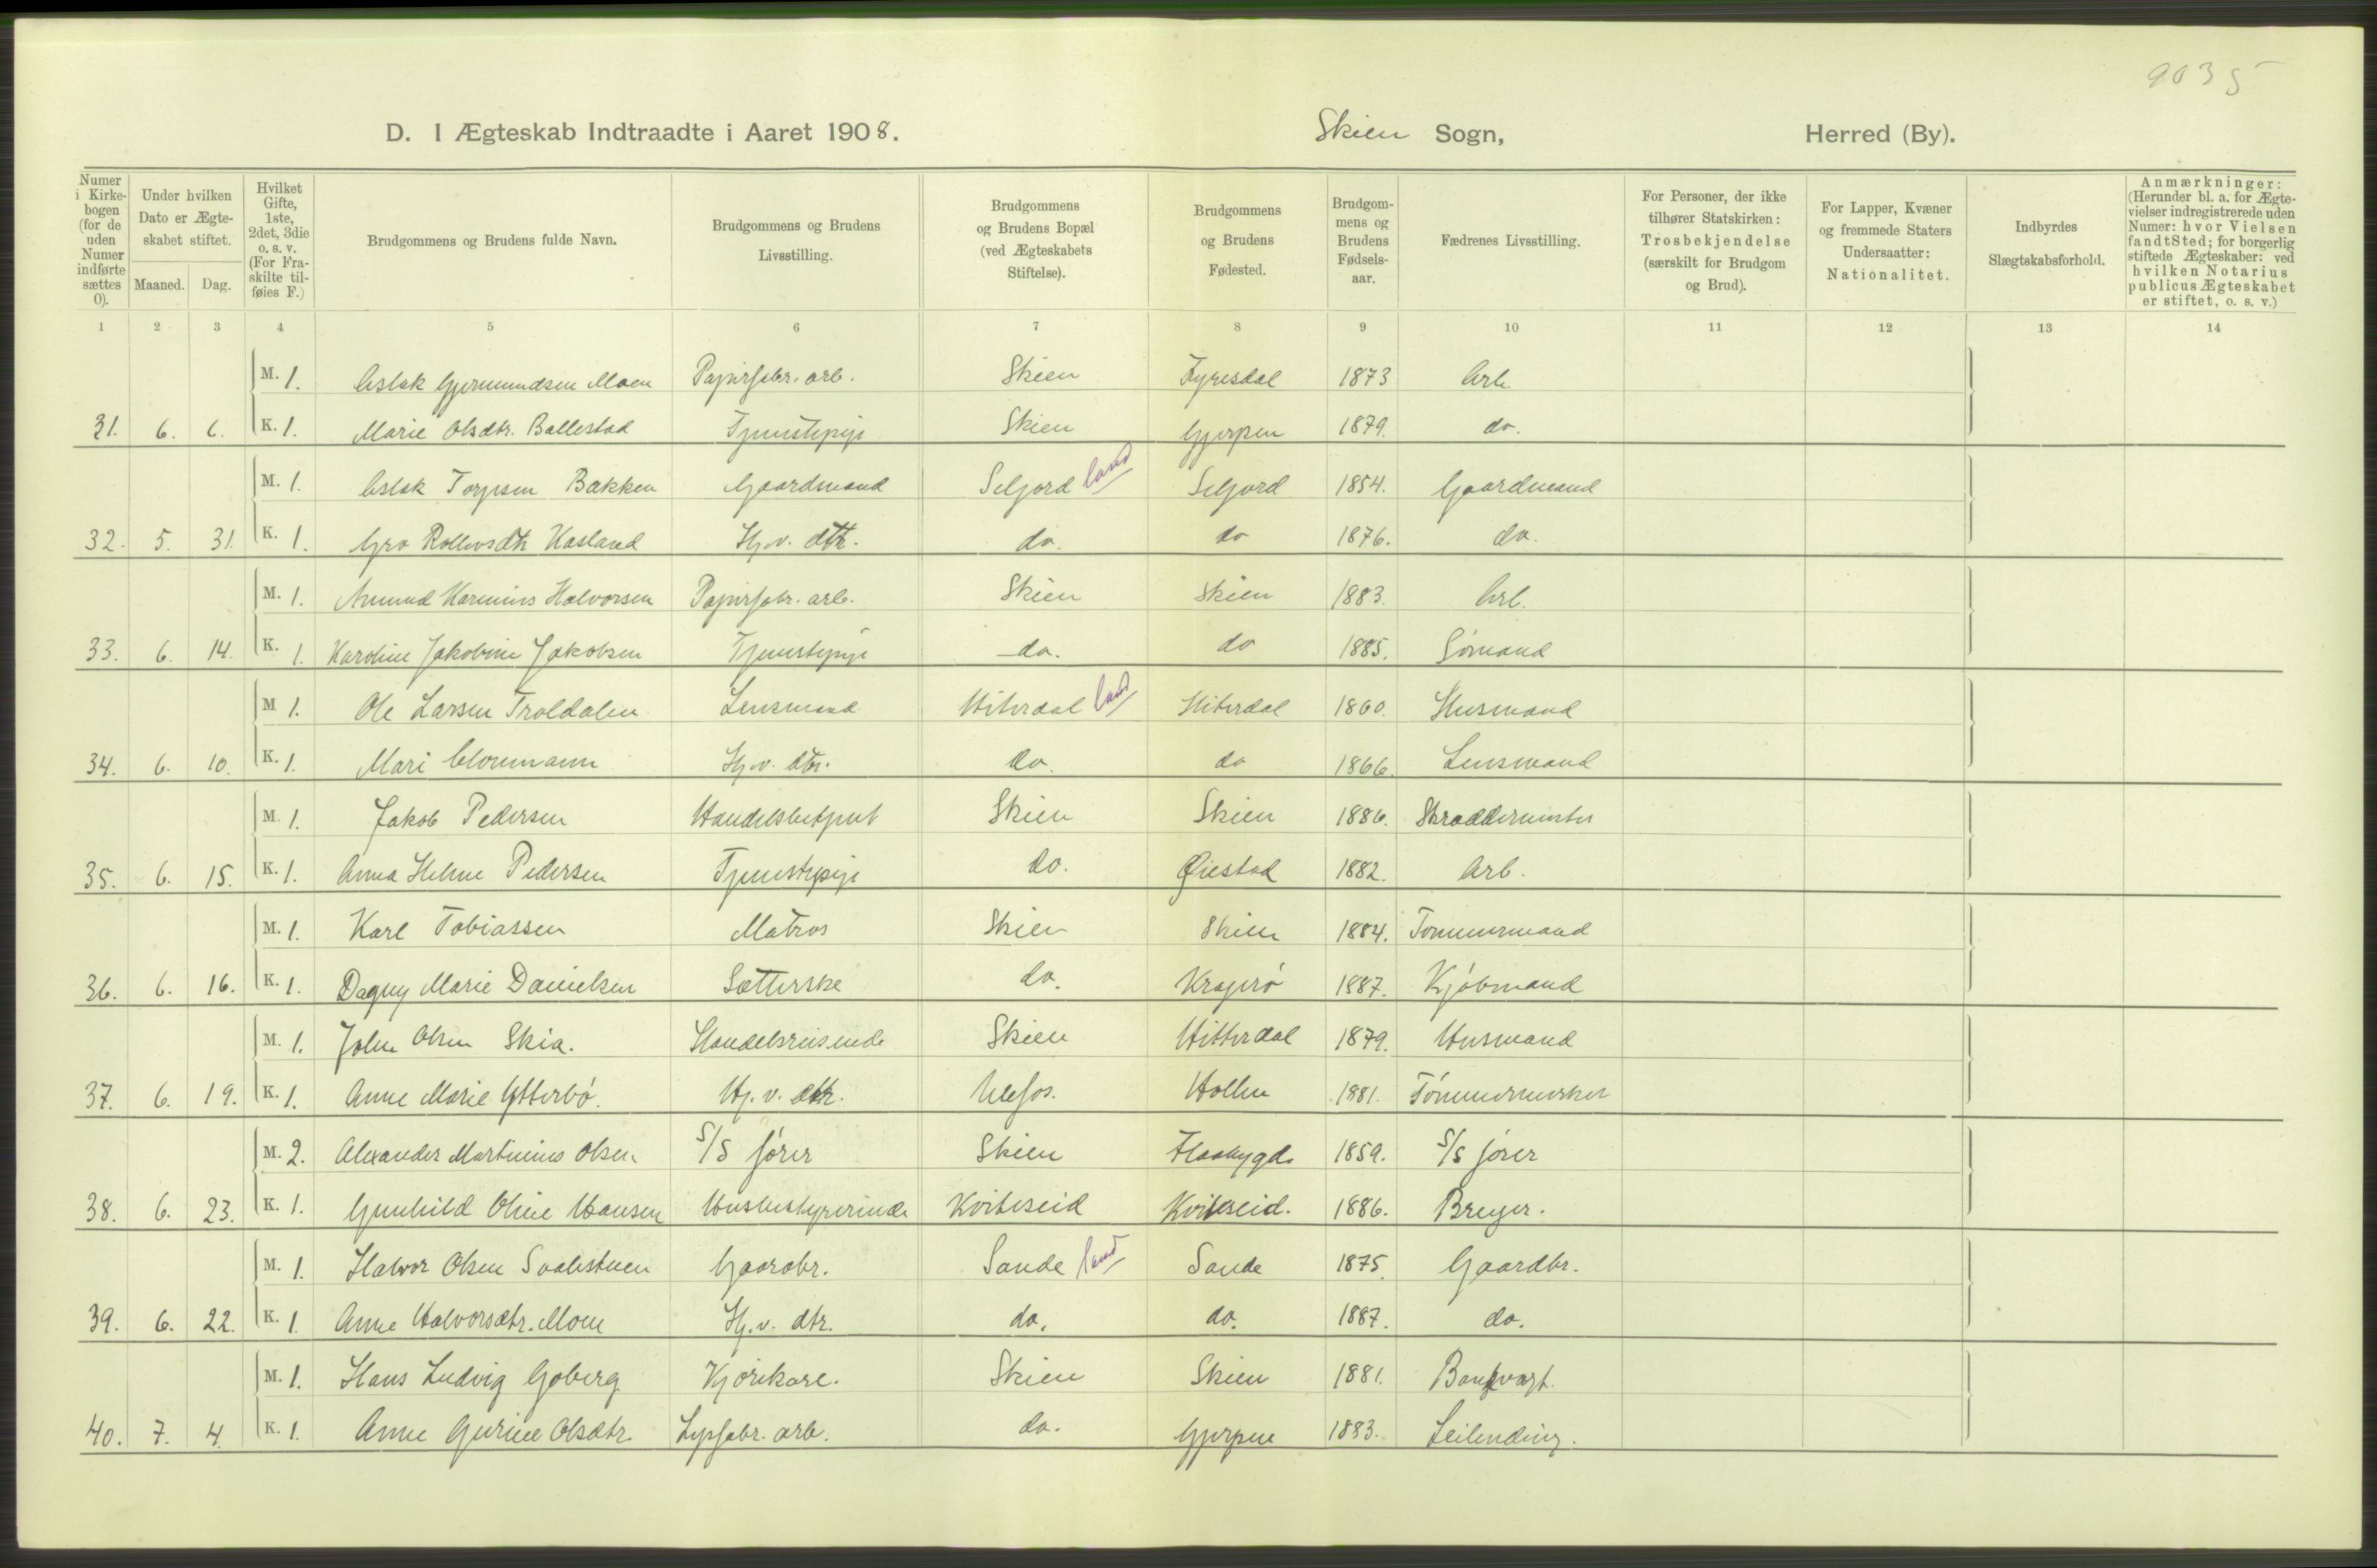 9035
D. I Ægteskab Indtraadte i Aaret 1908. Skien Sogn, Herred (By).
Numer i Kirkebogen (for de uden Numer indførte sættes 0). Under hvilken Dato er Ægteskabet stiftet. Maaned. Dag. Hvilket Gifte, 1ste, 2det, 3die o. s. v. (For Fraskilte tilføies F.) Brudgommens og Brudens fulde Navn. Brudgommens og Brudens Livsstilling. Brudgommens og Brudens Bopæl (ved Ægteskabets Stiftelse). Brudgommens og Brudens Fødested. Brudgommens og Brudens Fødselsaar. Fædrenes Livsstilling. For Personer, der ikke tilhører Statskirken: Trosbekjendelse (særskilt for Brudgom og Brud). For Lapper, Kvæner og fremmede Staters Undersaatter: Nationalitet. Indbyrdes Slægtskabsforhold. Anmærkninger: (Herunder bl. a. for Ægtevielser indregistrerede uden Numer: hvor Vielsen fandt Sted; for borgerlig stiftede Ægteskaber: ved hvilken Notarius publicus Ægteskabet er stiftet, o. s. v.)
1 2 3 4 5 6 7 8 9 10 11 12 13 14
M. 1. Aslak Gjermundsen Moen Papirfabr. arb. Skien Fyresdal 1873 Arb.
31. 6. 6. K. 1. Marie Olsdtr. Ballestad Tjenestepige Skien Gjerpen 1879. do.
M. 1. Aslak Torjusen Bakken Gaardmand Seljord land Seljord 1854. Gaardmand
32. 5. 31. K. 1. Gro Rollevsdtr Hasland Hj.v. dtr. do. do 1876. do.
M. 1. Amund Karinius Halvorsen Papirfabr. arb. Skien Skien 1883. Arb.
33. 6. 14. K. 1. Karoline Jakobine Jakobsen Tjenestepige do. do 1885. Sømand
M 1. Ole Larsen Troldalen Lensmand Hiterdal land Hiterdal 1860. Husmand
34. 6. 10. K. 1. Mari Clonmann Hj.v. dtr. do. do 1866. Lensmand
M. 1. Jakob Pedersen Handelsbetjent Skien Skien 1886. Skræddermester
35. 6. 15. K. 1. Anna Helene Pedersen Tjenestepige do. Øiestad 1882. Arb.
M. 1. Karl Tobiassen Matros Skien Skien 1884. Tømmermand
36. 6. 16. K. 1. Dagny Marie Danielsen Sætterske do. Kragerø 1887. Kjøbmand
M. 1. John Olsen Skia. Handelsreisende Skien Hitterdal 1879. Husmand
37. 6. 19. K. 1. Anne Marie Ytterbø. Hj.v. dtr. Ulefos. Hollen 1881. Tømmermerker
M. 2. Alexander Martinius Olsen S/S fører Skien Flaabygd. 1859. S/S fører
38. 6. 23. K. 1. Gunhild Oline Hansen Husbestyrerinde Kviteseid Kviteseid. 1886. Brygger.
M. 1. Halvor Olsen Svalestuen Gaardbr. Sande land Sande 1875. Gaardbr.
39. 6. 22. K. 1. Anne Halvorsdtr. Moen Hj.v. dtr. do. do. 1887. do.
M. 1. Hans Ludvig Goberg Kjørekarl. Skien Skien 1881. Bankvagt.
40. 7. 4. K. 1. Anne Gurine Olsdtr. Lysfabr. arb. do. Gjerpen 1883. Leilending.